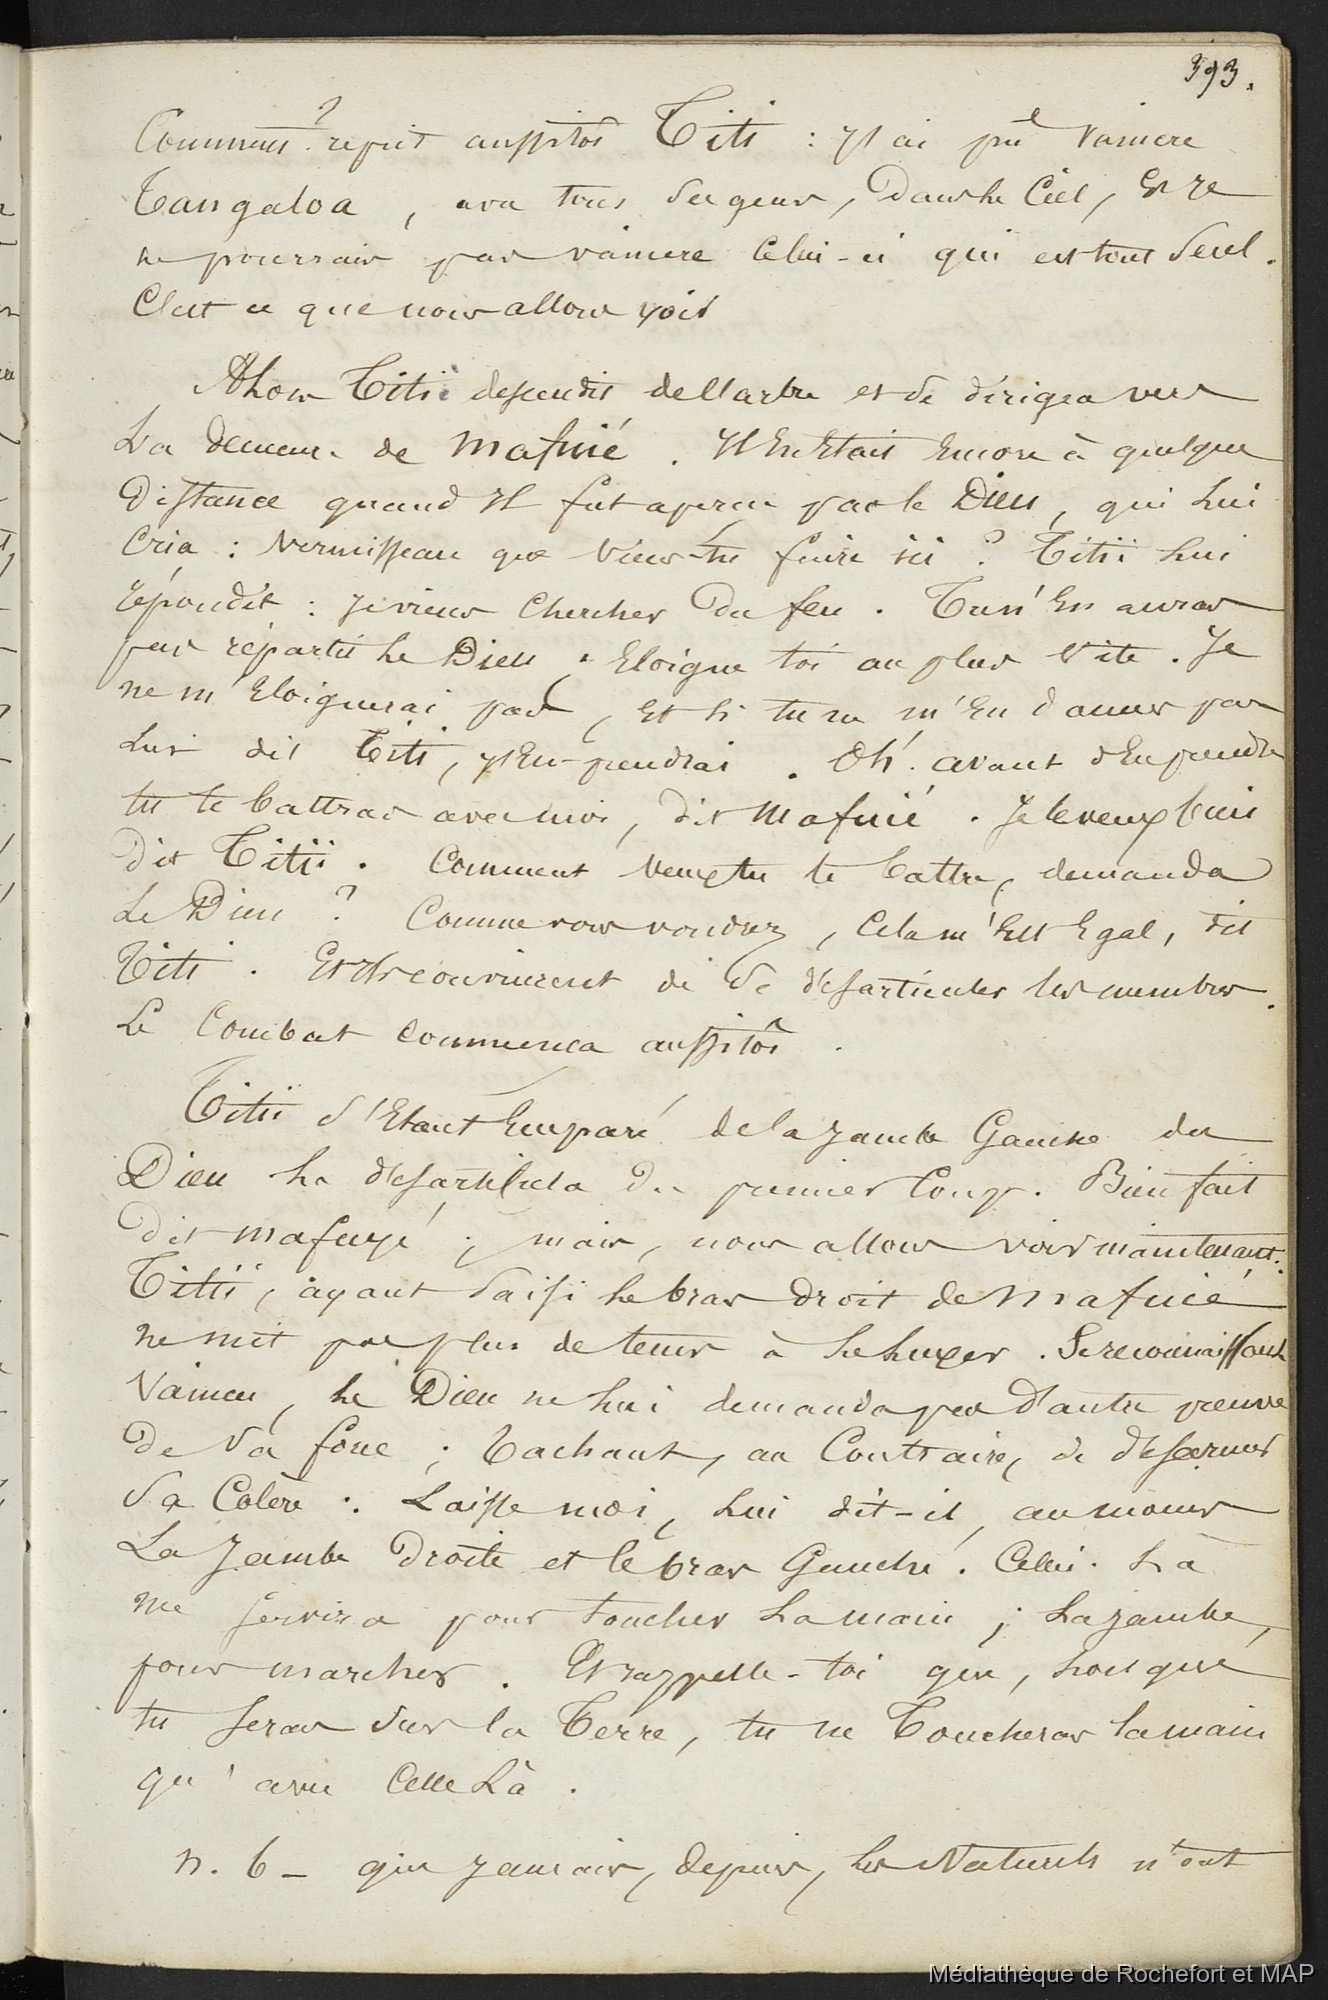 393.
Comment ? reprit aussitôt Titi : j'ai pu vaincre
Tangaloa, avec tous ses gens, dans le Ciel, Et je
ne pourrais pas vaincre celui-ci qui est tout seul.
C'est ce que nous allons voir
Alors Titii descendit de l'arbre et se dirigea vers
La demeure de Mafuié. Il En Etait Encore à quelque
distance quand Il fut aperçu par le Dieu, qui lui
Cria : Vermisseau que viens-tu faire ici ? Titii lui
répondit : je viens chercher du feu. Tu n'En auras
pas répartit le Dieu ; Eloigne toi au plus vite. Je
ne m'Eloignerai pas, Et si tu ne m'En donnes pas
Lui dit Titi, j'En prendrai. Oh ! avant d'En prendre
tu te battras avec moi, dit Mafuié. Je le veux bien
dit Titii. Comment veux tu te battre, demanda
Le Dieu ? Comme vous voudrez, Cela m'Est Egal, dit
Titi. Et Ils convinrent de se désarticuler les membres.
Le Combat commença aussitôt.
Titii s'Etant Emparé de la jambe Gauche du
Dieu la désarticula du premier Coup. Bien fait
dit Mafuyé ; mais, nous allons voir maintenant.
Titii, ayant saisi le bras droit de Mafuié
ne mit pas plus de tems à le luxer. Se reconnaissant
Vaincu, le Dieu ne lui demanda pas d'autre preuve
De sa force ; Tachant, au Contraire, de désarmer
sa Colère : Laisse moi, lui dit-il, au moins
La Jambe Droite et le bras Gauche. Celui-Là
me servira pour toucher La main ; La jambe,
pour marcher. Et rappelle-toi que, lorsque
tu seras sur la Terre, tu ne Toucheras la main
qu'avec Celle Là.
n. b - que jamais, depuis, les Naturels n'ont
Médiathèque de Rochefort et MAP